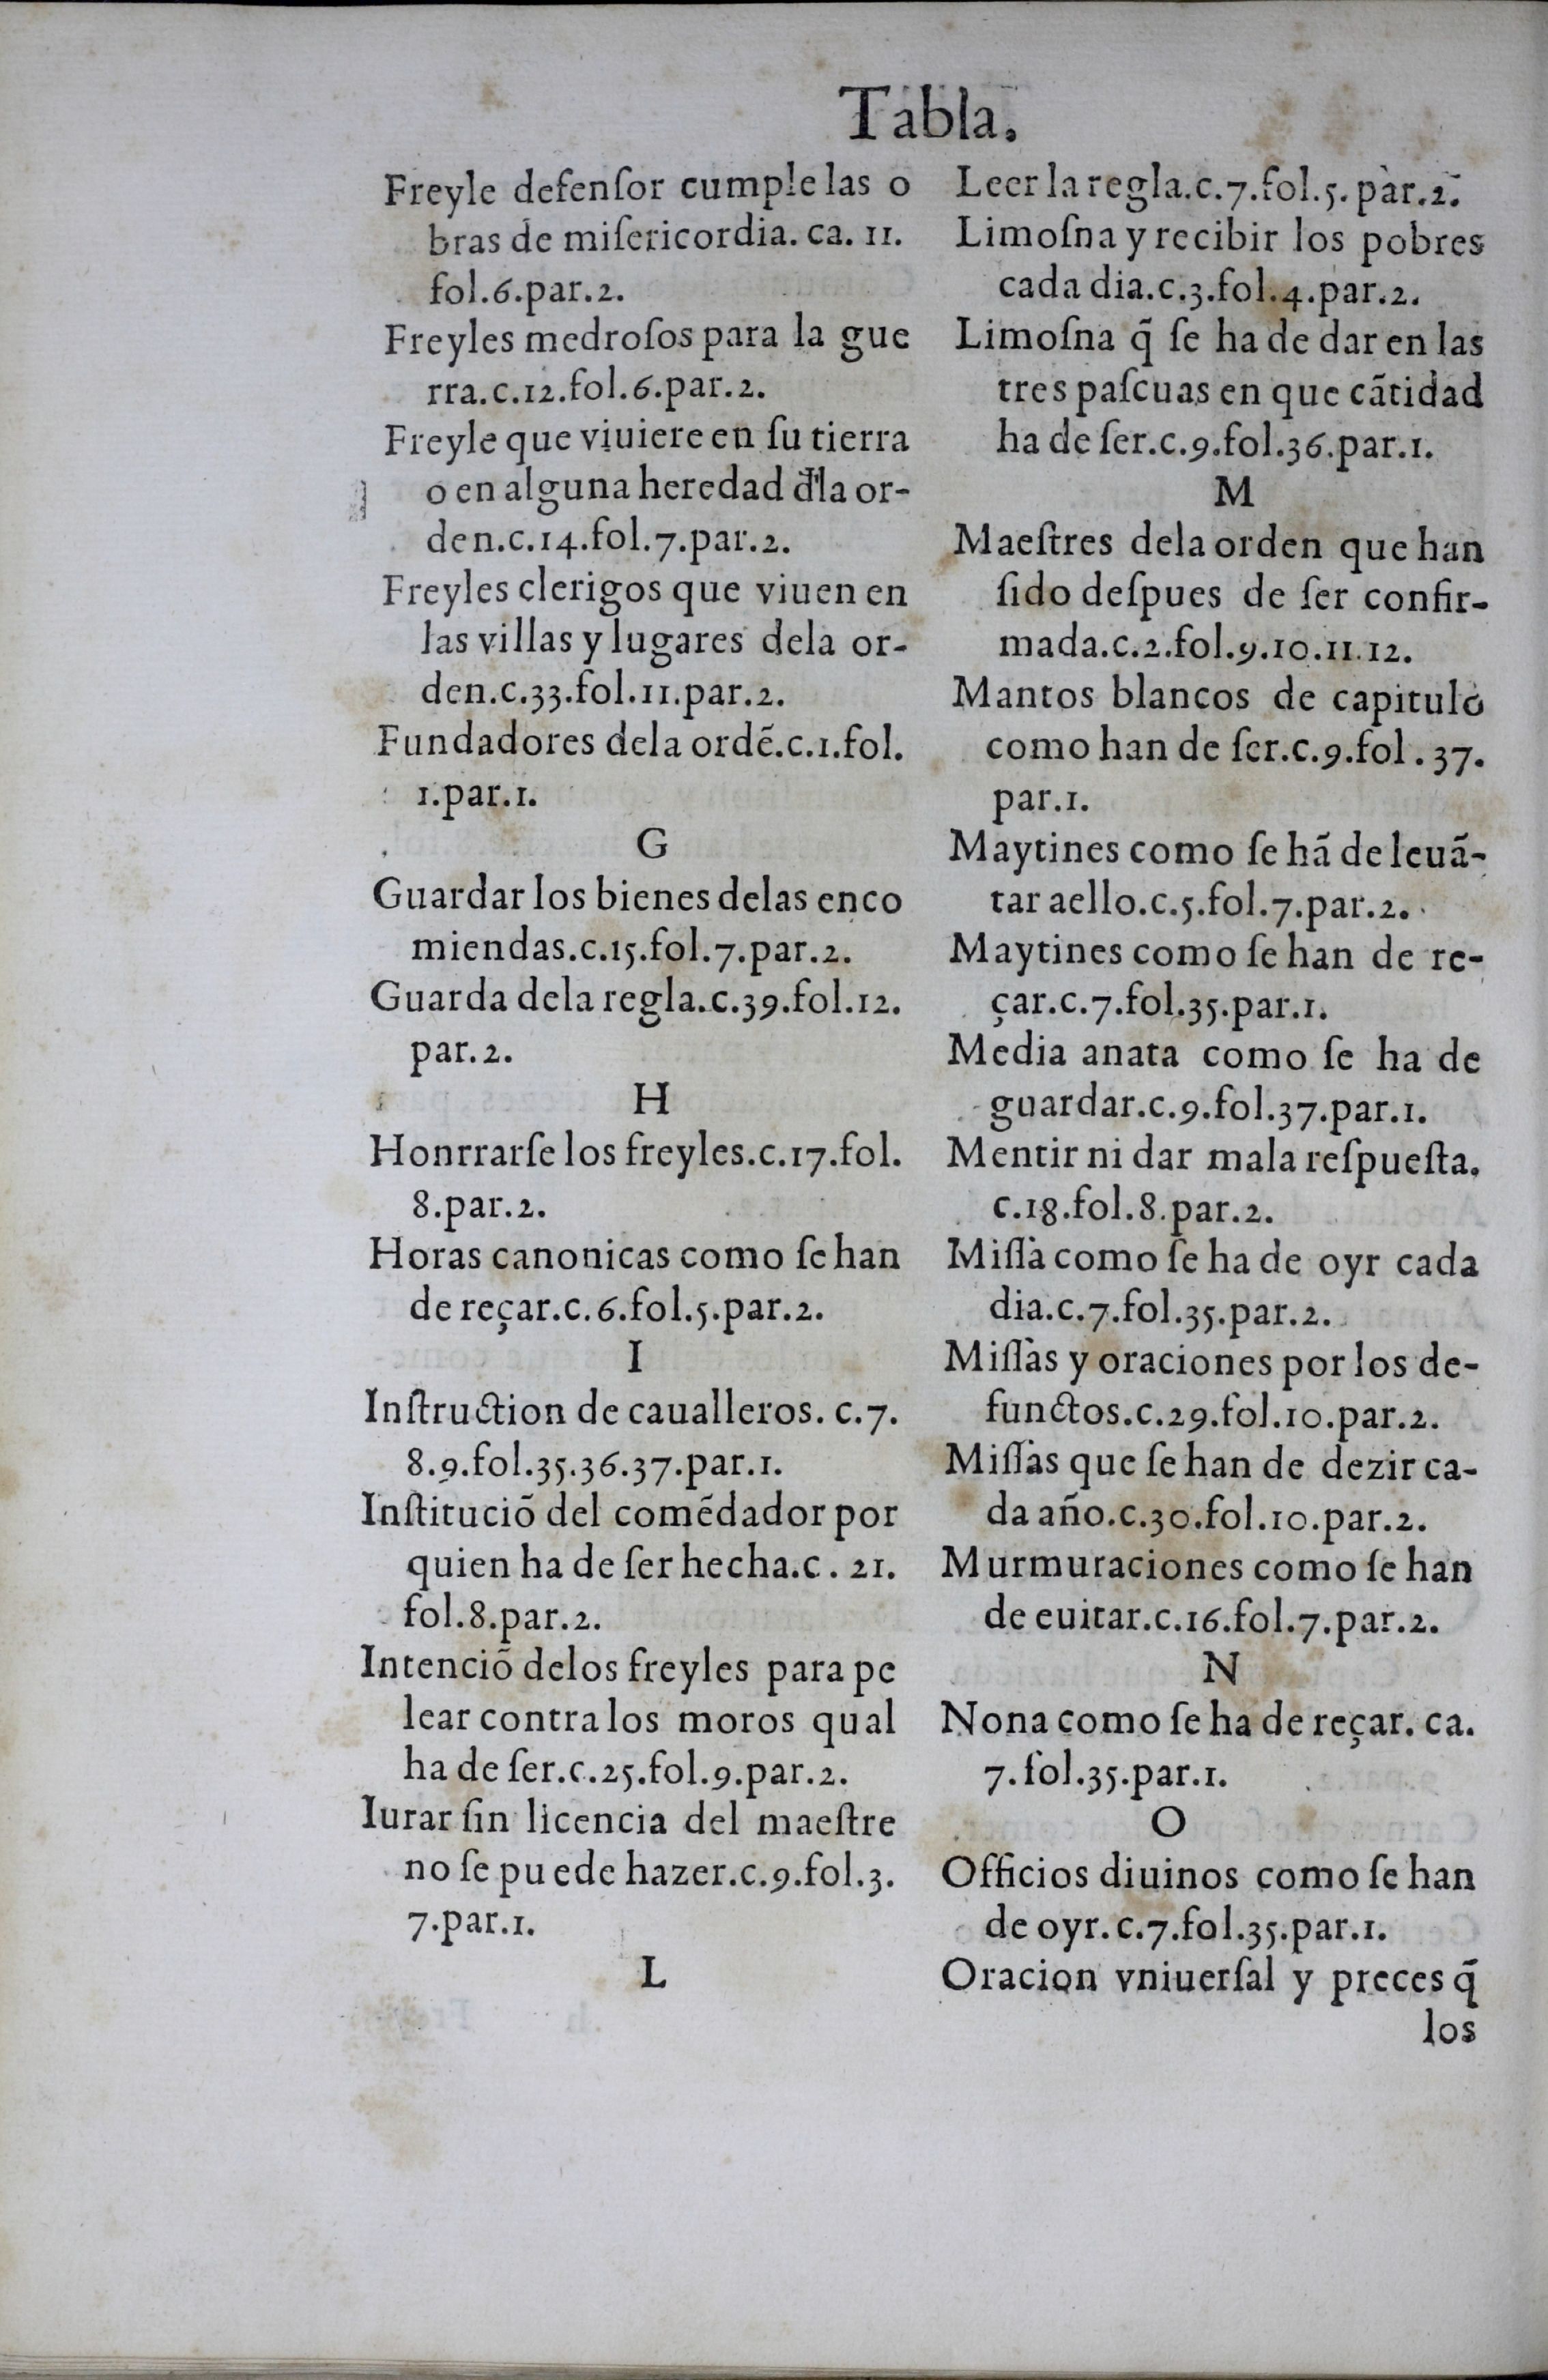 Tabla.
Freyle defenſor cumple las o
bras de miſericordia. ca. 11.
fol.6.par.2.
Freyles medroſos para la gue
rra.c.12.fol.6.par.2.
Freyle que viuiere en ſu tierra
o en alguna heredad đla or-
den.c.14.fol.7.par.2.
Freyles clerigos que viuen en
las villas y lugares dela or-
den.c.33.fol.11.par.2.
Fundadores dela ordẽ.c.1.fol.
1.par.1.
G
Guardar los bienes delas enco
miendas.c.15.fol.7.par.2.
Guarda dela regla.c.39.fol.12.
par.2.
H
Honrrarſe los freyles.c.17.fol.
8.par.2.
Horas canonicas como ſe han
de reçar.c.6.fol.5.par.2.
I
Inſtruction de caualleros. c.7.
8.9.fol.35.36.37.par.1.
Inſtituciõ del comẽdador por
quien ha de ſer hecha.c. 21.
fol.8.par.2.
Intenciõ delos freyles para pe
lear contra los moros qual
ha de ſer.c.25.fol.9.par.2.
Iurar ſin licencia del maeſtre
no ſe puede hazer.c.9.fol.3.
7.par.1.
L
Leer la regla.c.7.fol.5.par.2.
Limoſna y recibir los pobres
cada dia.c.3.fol.4.par.2.
Limoſna q̃ ſe ha de dar en las
tres paſcuas en que cãtidad
ha de ſer.c.9.fol.36.par.1.
M
Maeſtres dela orden que han
ſido deſpues de ſer confir-
mada.c.2.fol.9.10.11.12.
Mantos blancos de capitulo
como han de ſer.c.9.fol.37.
par.1.
Maytines como ſe hã de leuã-
tar aello.c.5.fol.7.par.2.
Maytines como ſe han de re-
çar.c.7.fol.35.par.1.
Media anata como ſe ha de
guardar.c.9.fol.37.par.1.
Mentir ni dar mala reſpueſta.
c.18.fol.8.par.2.
Miſſa como ſe ha de oyr cada
dia.c.7.fol.35.par.2.
Miſſas y oraciones por los de-
functos.c.29.fol.10.par.2.
Miſſas que ſe han de dezir ca-
da año.c.30.fol.10.par.2.
Murmuraciones como ſe han
de euitar.c.16.fol.7.par.2.
N
Nona como ſe ha de reçar. ca.
7.fol.35.par.1.
O
Officios diuinos como ſe han
de oyr.c.7.fol.35.par.1.
Oracion vniuerſal y preces q̃
los